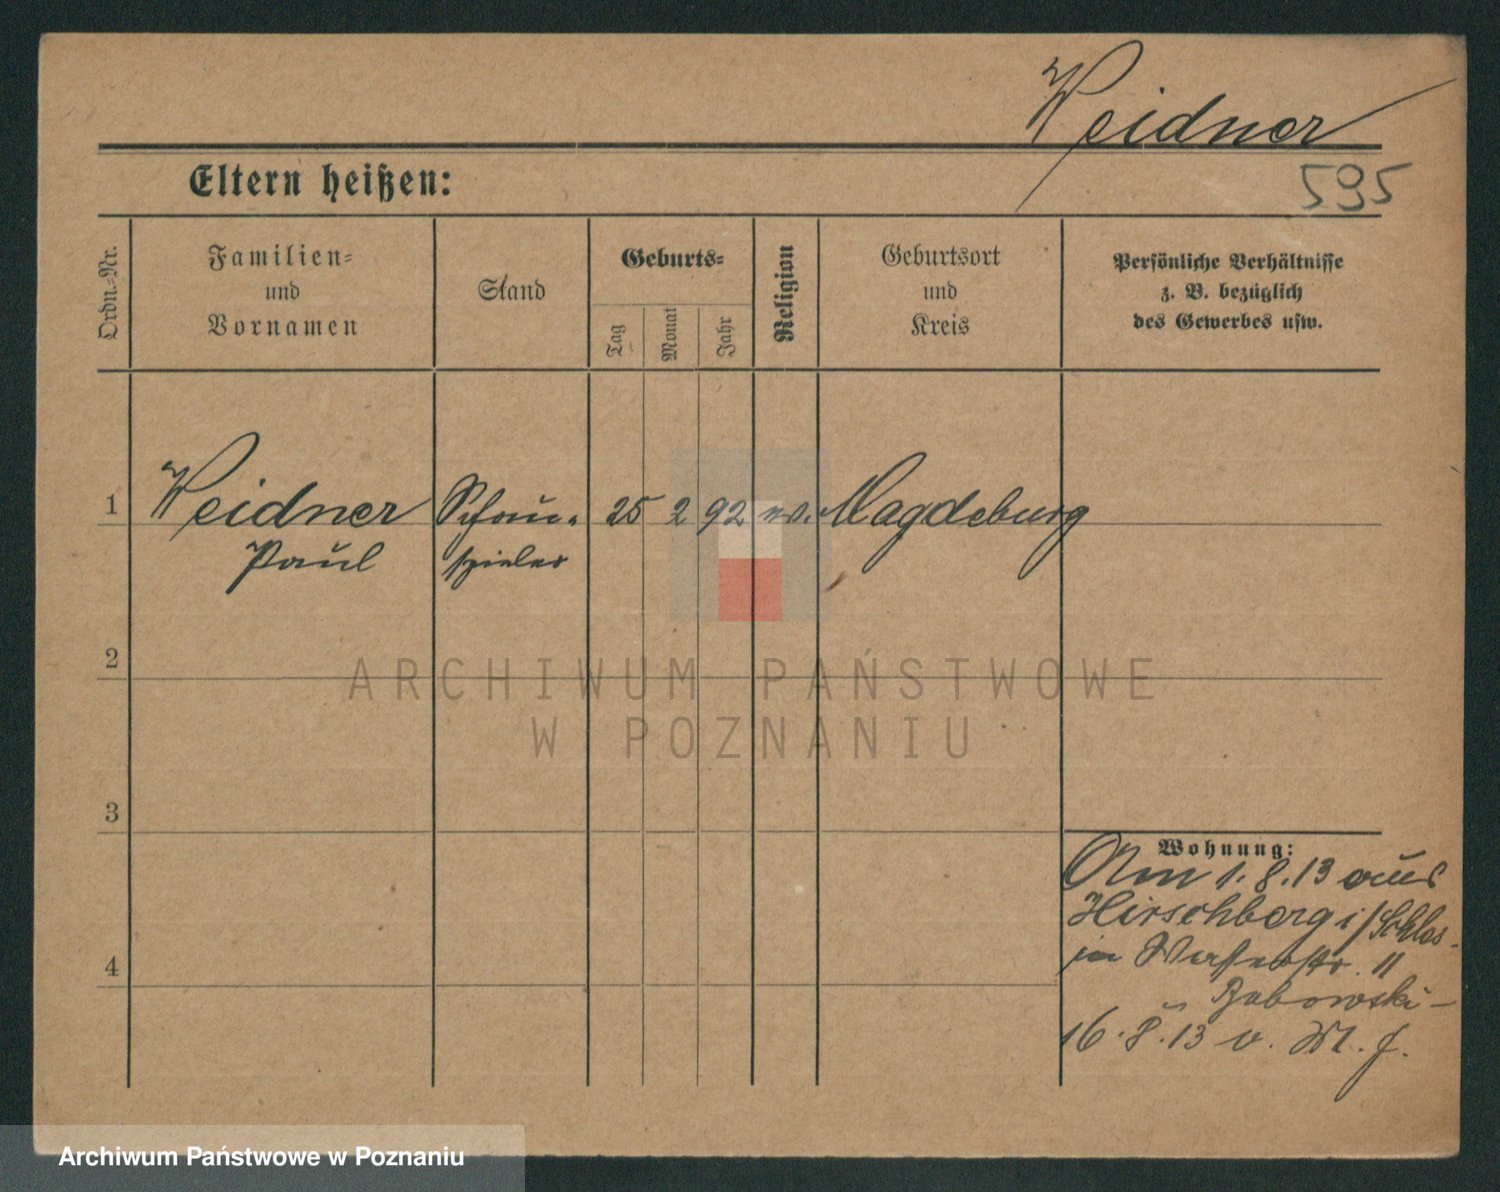 Weidner
595
Eltern heißen:
Ordn.-Nr.
Familien-
und
Vornamen
Stand
Geburts-
Tag
Monat
Jahr
Religion
Geburtsort
und
Kreis
Persönliche Verhältnisse
z. B. bezüglich
des Gewerbes usw.
1 Weidner Schau- 25 2 92 ev. Magdeburg
Paul spieler
2
3
4
ARCHIWUM PAŃSTWOWE
W POZNANIU
Wohnung:
Am 1.8.13 aus
Hirschberg i/Schles.
in Wasserstr. 11
16.8.13 v.
Archiwum Państwowe w Poznaniu